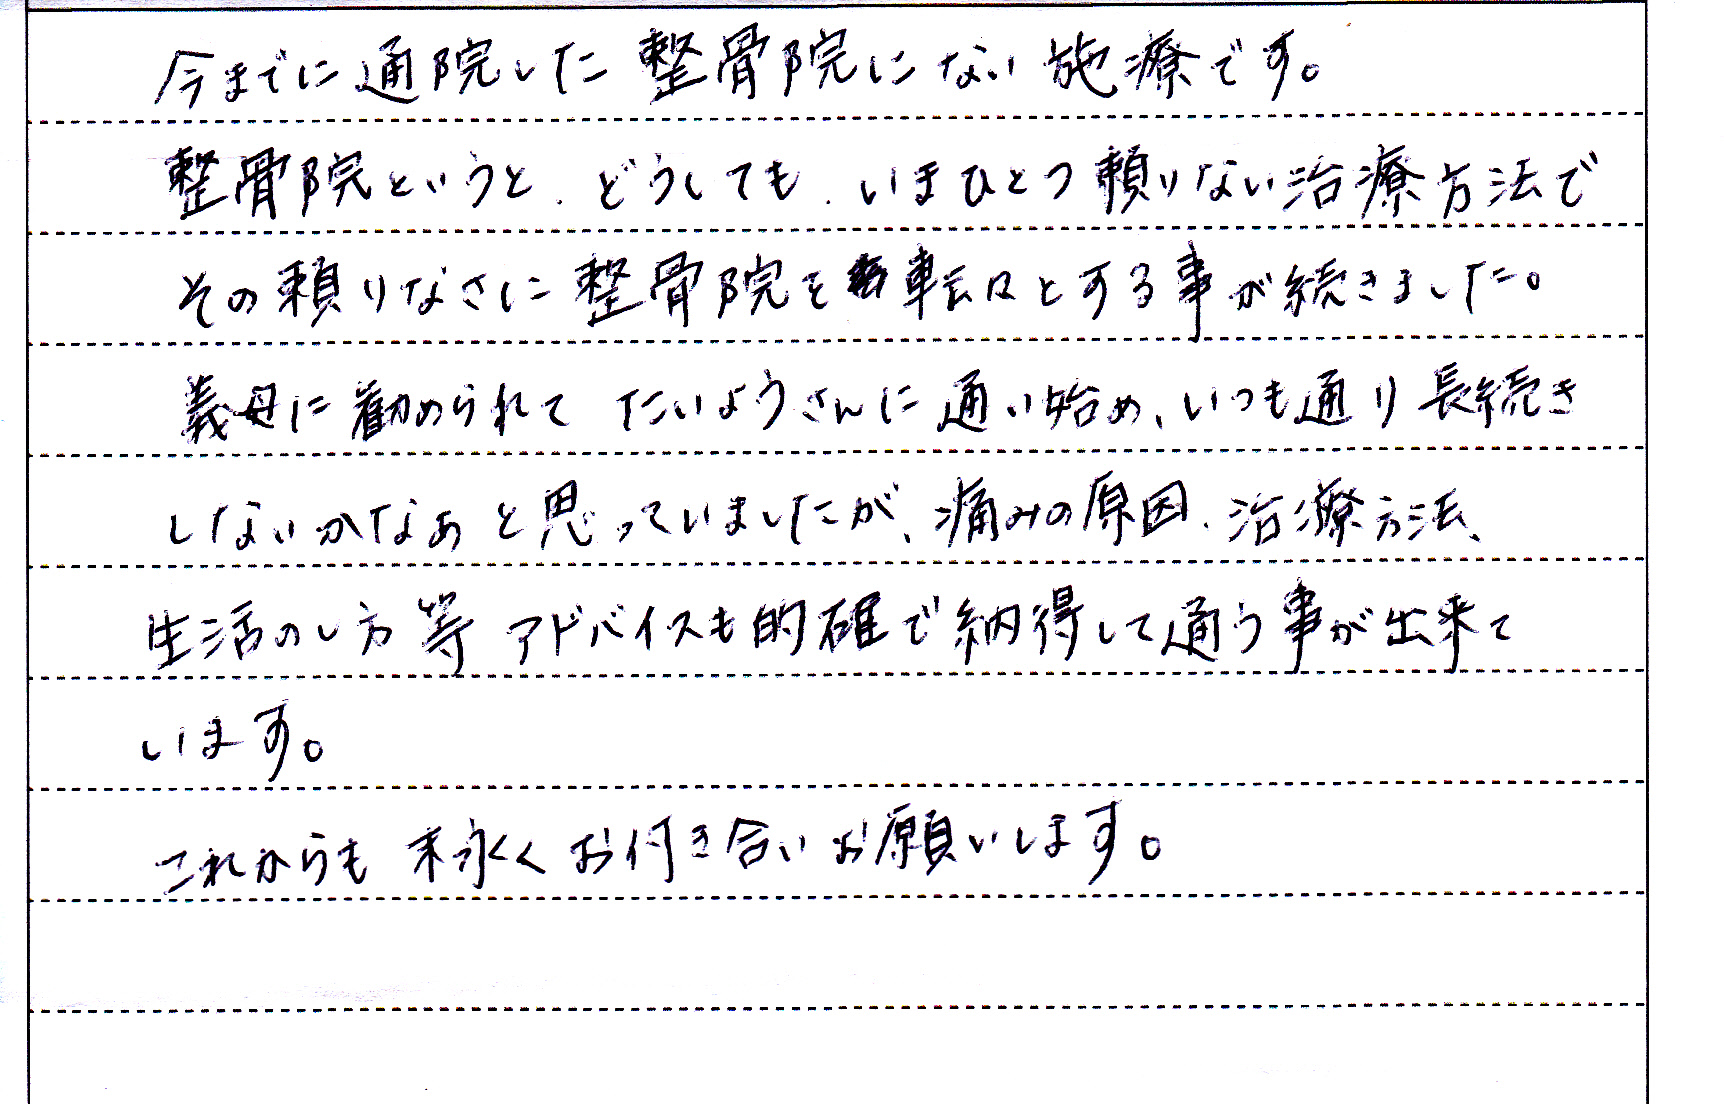 今までに通院した整骨院にない施療です。
整骨院というと、どうしても、いまひとつ頼りない治療方法で
その頼りなさに整骨院を転々とする事が続きました。
義母に勧められて たいようさんに通い始め、いつも通り長続き
しないかなぁと思っていましたが、痛みの原因、治療方法、
生活のし方等 アドバイスも的確で納得して通う事が出来て
います。
これからも末永くお付き合いお願いします。